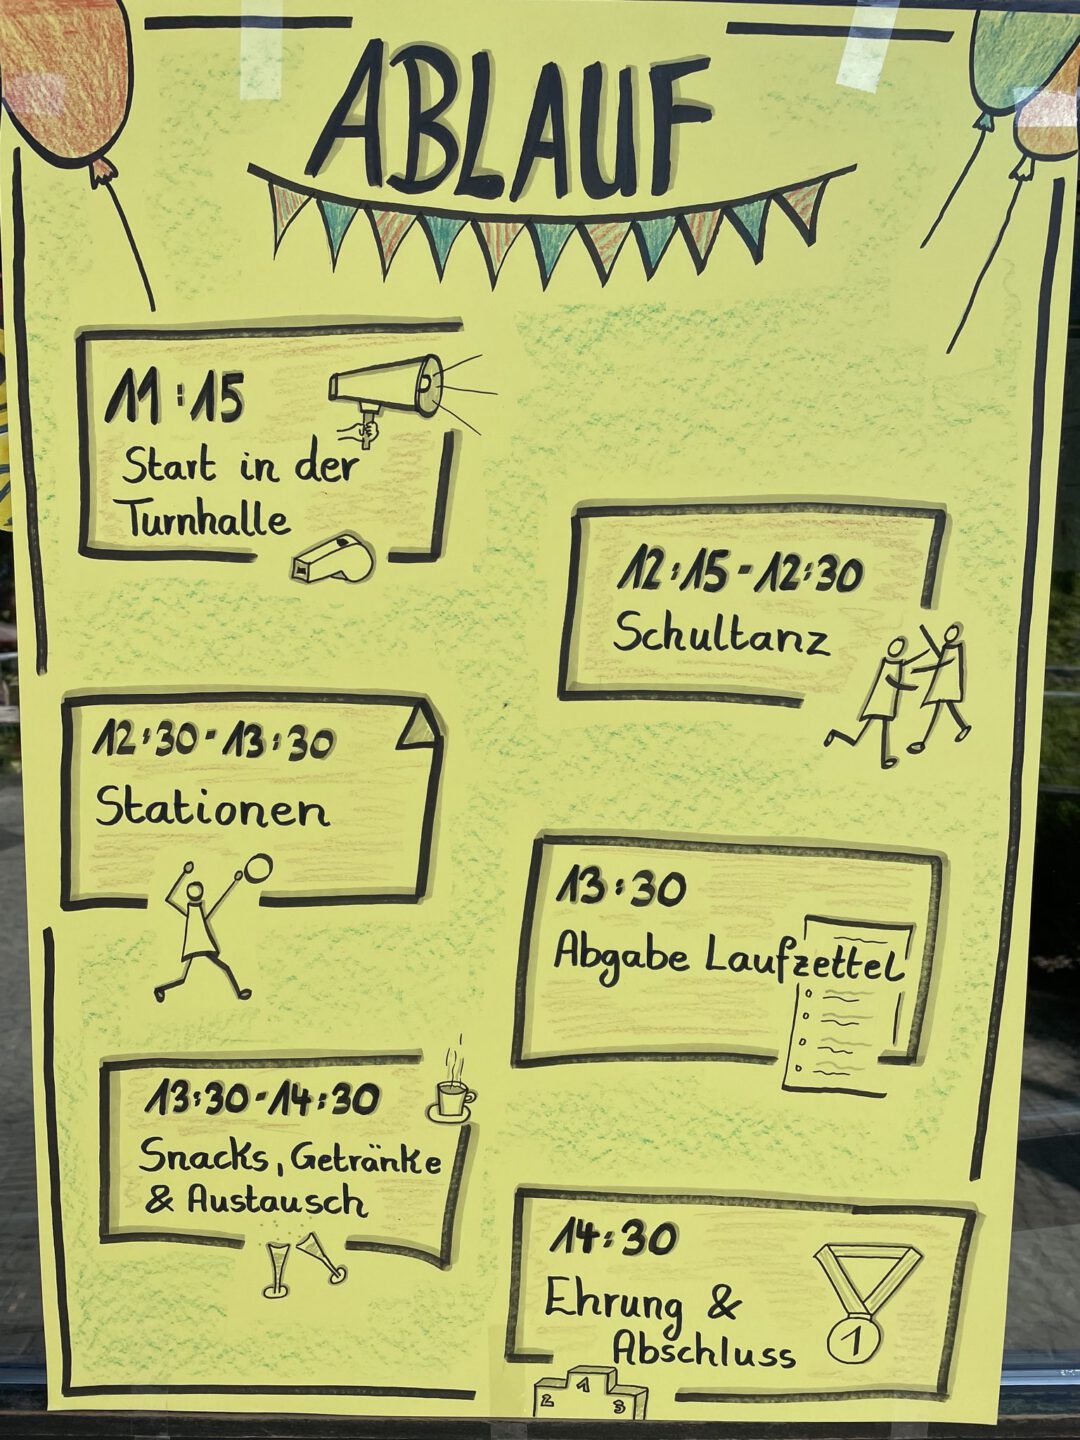 ABLAUF
11:15
Start in der
Turnhalle
12:15-12:30
Schultanz
12:30-13:30
Stationen
13:30
Abgabe Laufzettel
13:30-14:30
Snacks, Getränke
& Austausch
14:30
Ehrung &
Abschluss
1
1
2
3